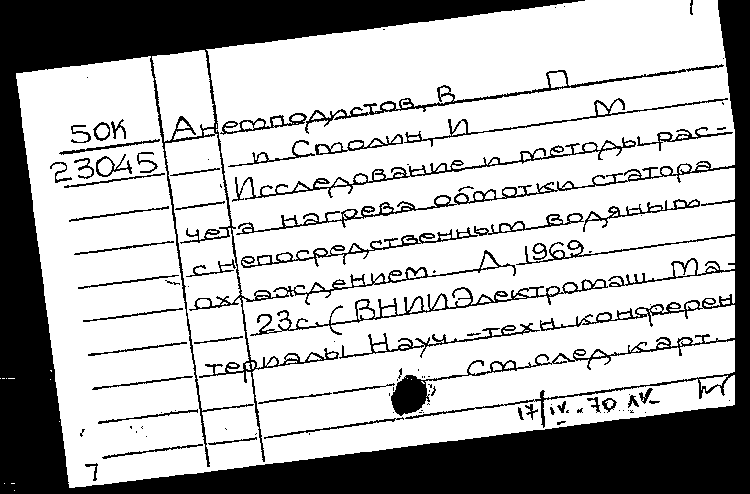 50К Анемподистов, В П
23045 и Столин, И М
Исследование и методы рас-
чета нагрева обмотки статора
с непосредственным водяным
охлаждением. Л, 1969.
23с. (ВНИИЭлектромаш. Ма-
териалы Науч.-техн. конферен
См. след. карт.
17/IV-70
7